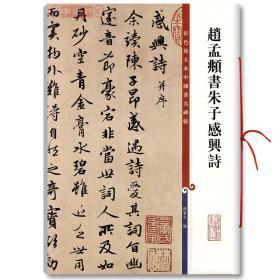 趙孟頫書朱子感興詩
彩色放大本中國著名碑帖
感興詩 并序
余讀陳子昂感遇詩愛其詞旨幽
邃音節豪宕非當世詞人所及如
丹砂空青金膏水碧雖近乏世用
而實物外難得自然之奇寶